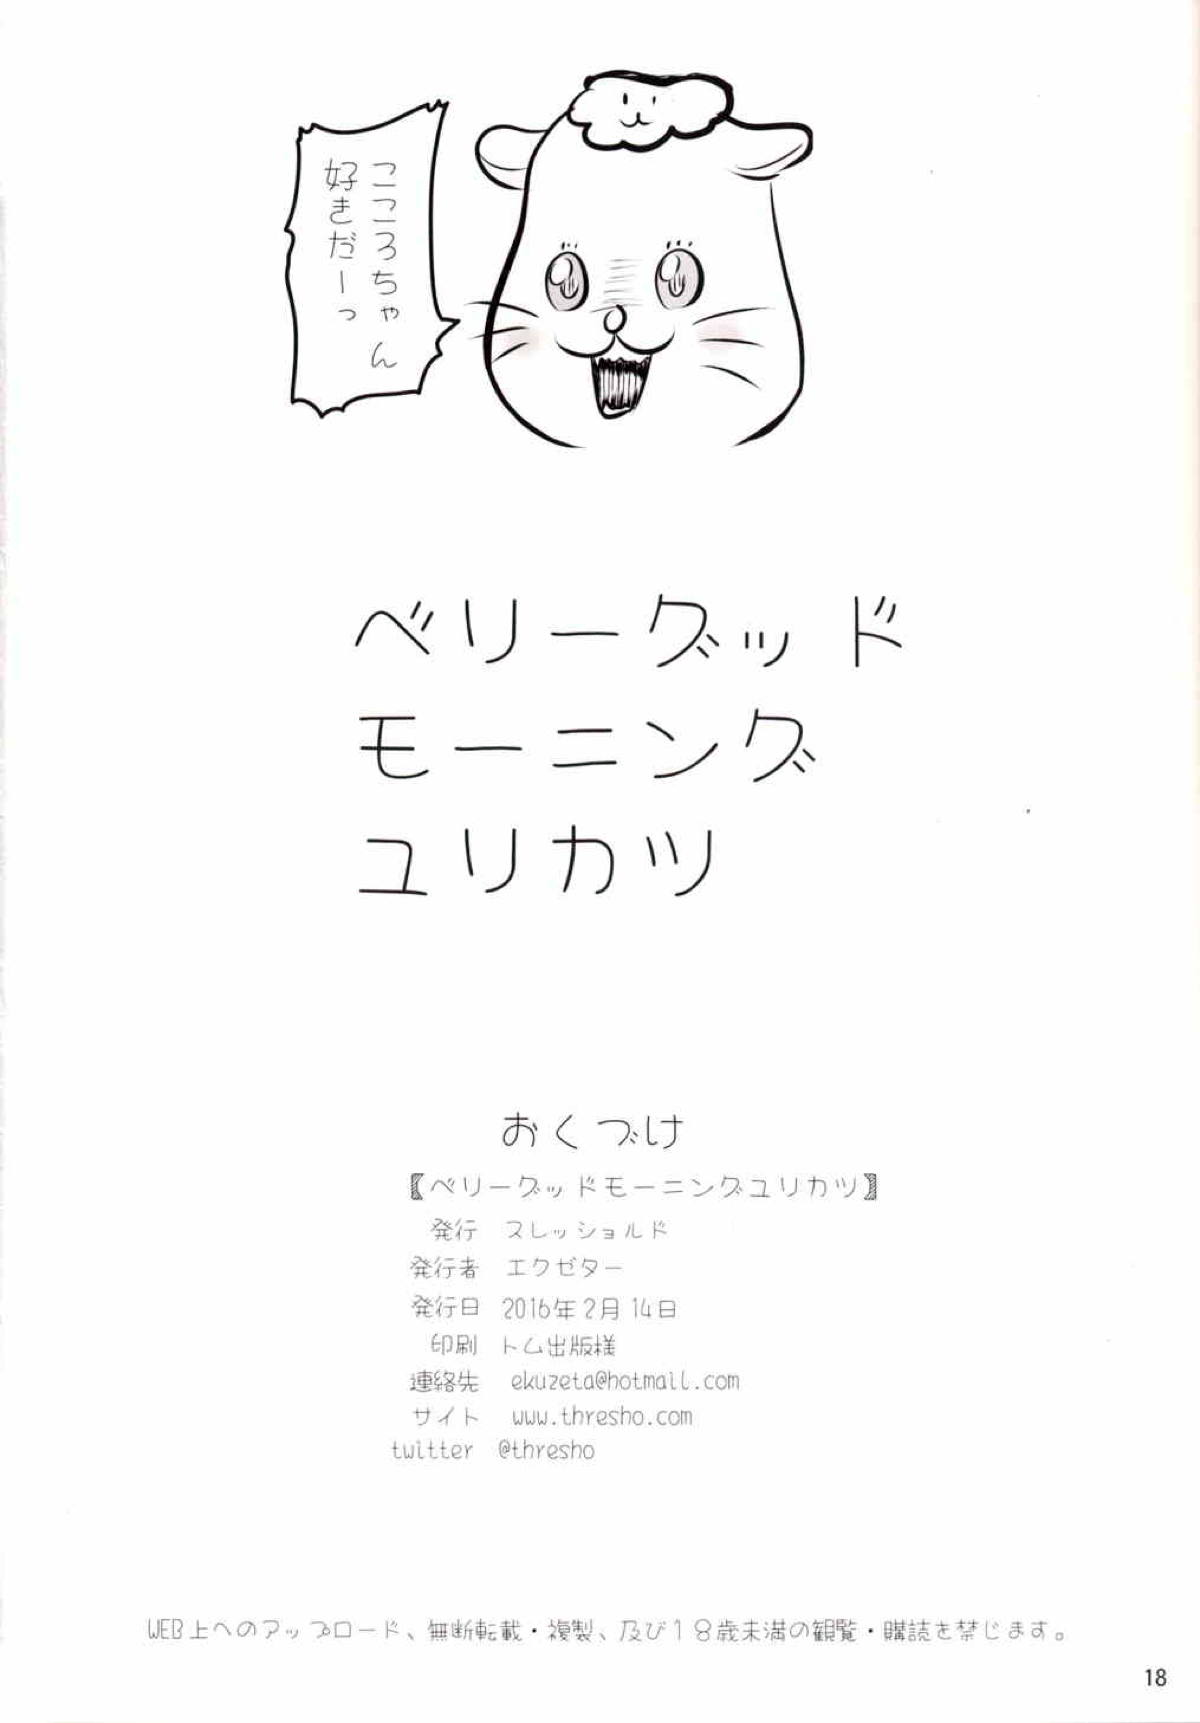 こころちゃん
好きだーっ
ベリーグッド
モーニング
ユリカツ
おくづけ
〖ベリーグッドモーニングユリカツ〗
発行 スレッショルド
発行者 エクゼター
発行日 2016年2月14日
印刷 トム出版様
連絡先 ekuzeta@hotmail.com
サイト www.thresho.com
twitter @thresho
WEB上へのアップロード、無断転載・複製、及び18歳未満の観覧・購読を禁じます。
18